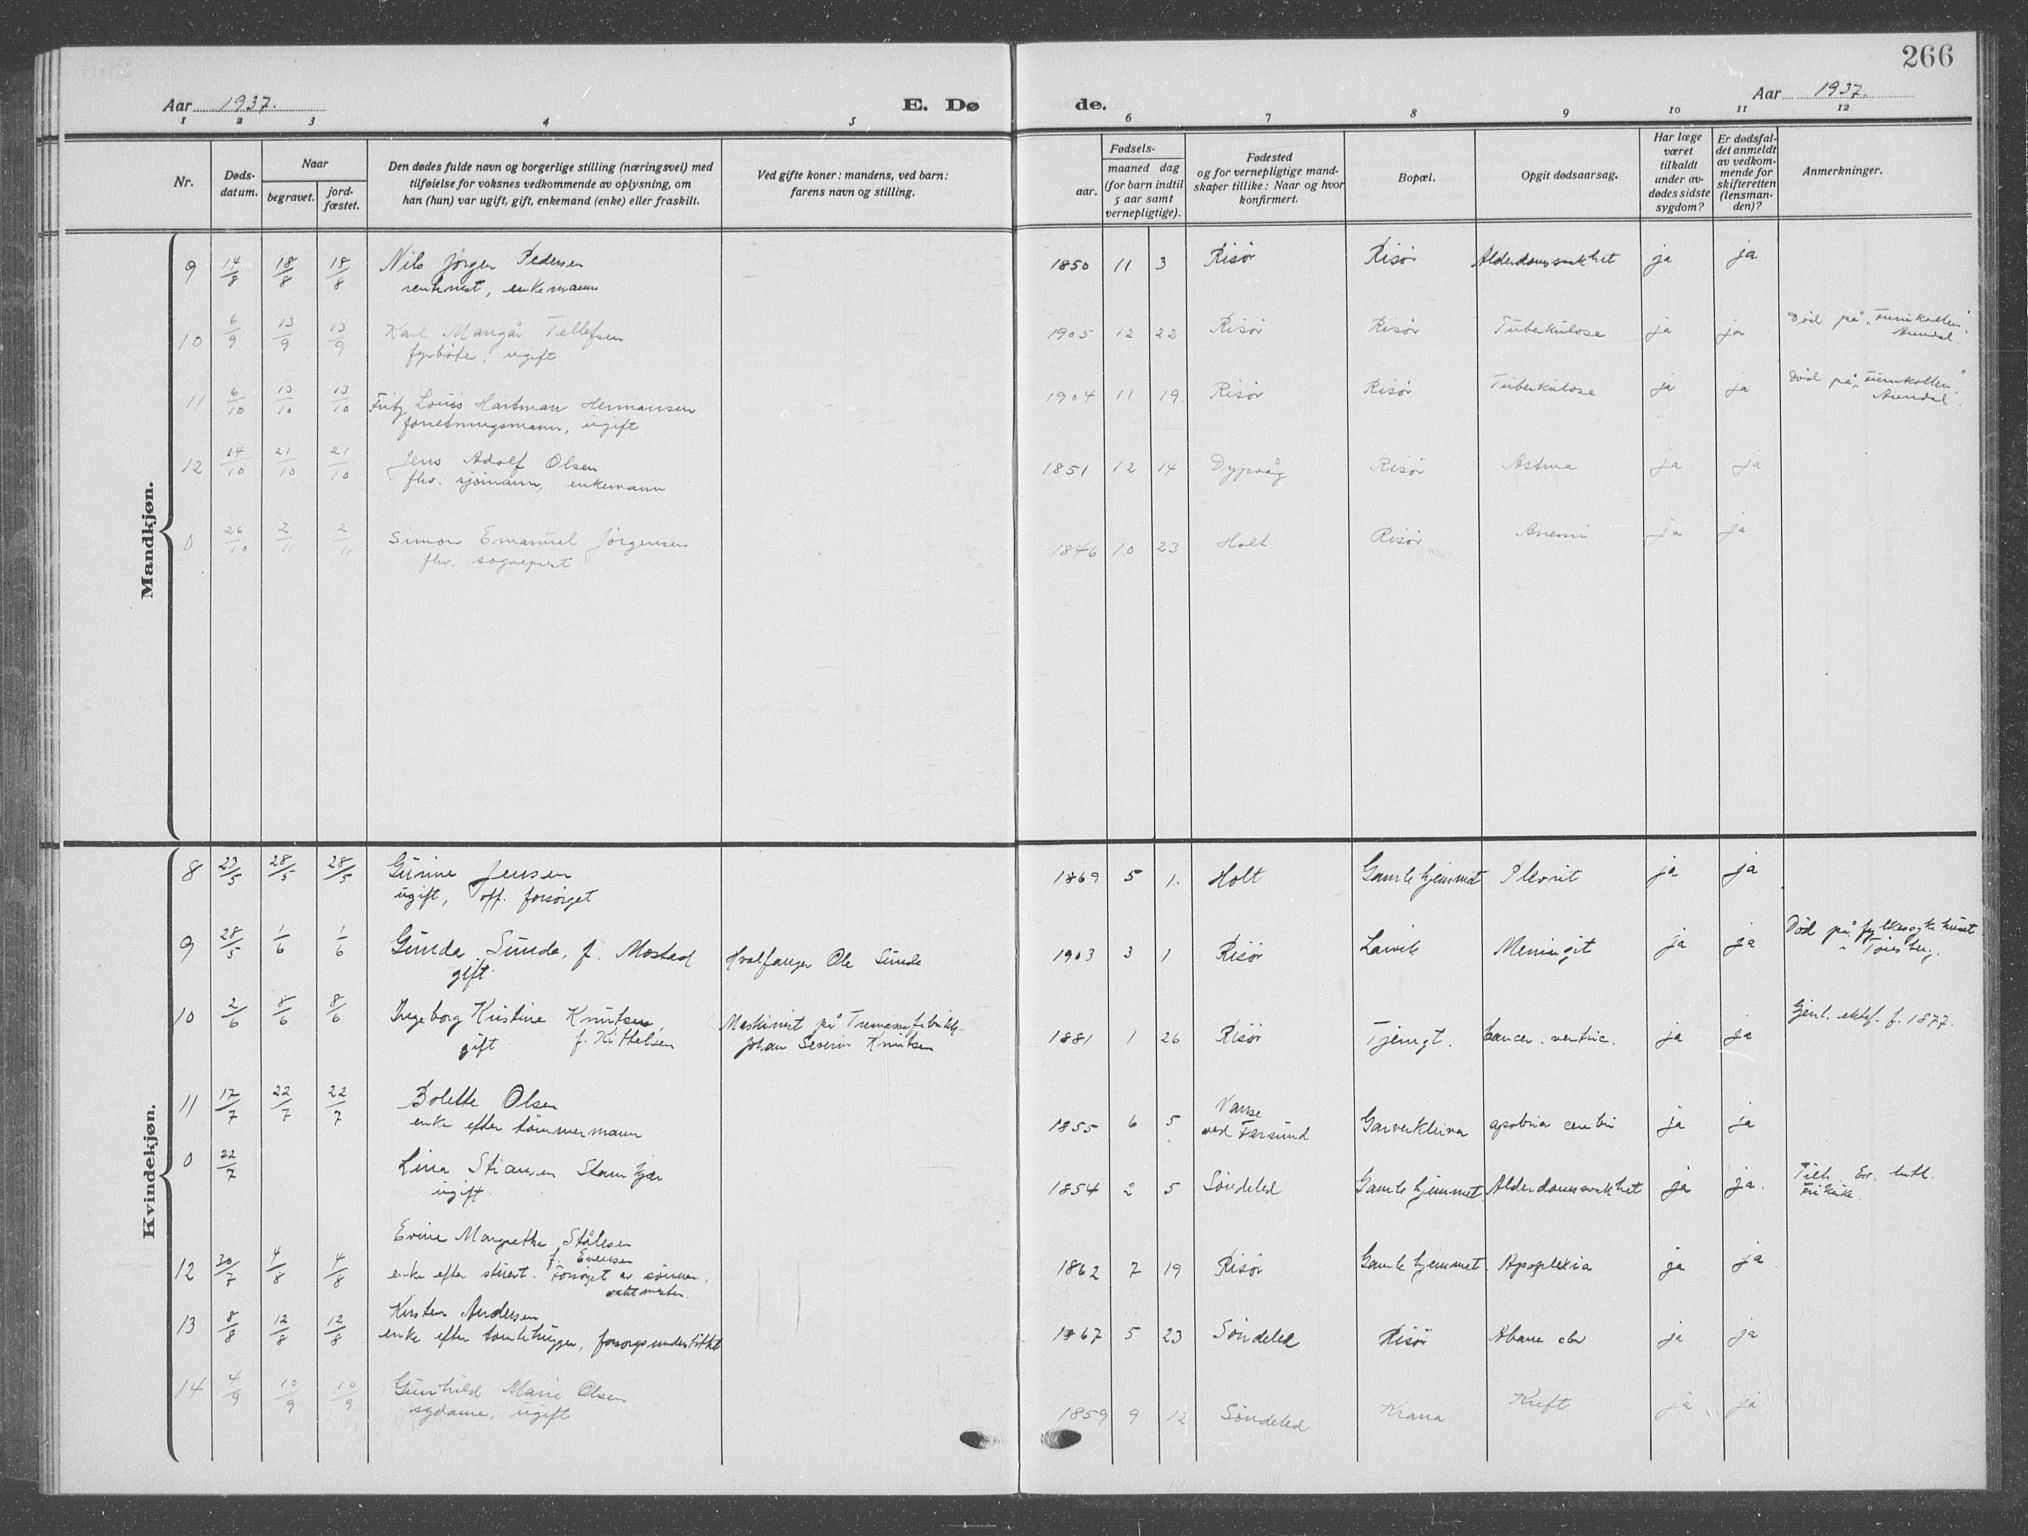 266
Aar 1937.
E. Dø
de.
Aar 1937.
1 2 3 4 5 6 7 8 9 10 11 12
Nr.
Døds-
datum.
Naar
begravet.
jord-
fæstet.
Den dødes fulde navn og borgerlige stilling (næringsvei) med
tilføielse for voksnes vedkommende av oplysning, om
han (hun) var ugift, gift, enkemand (enke) eller fraskilt.
Ved gifte koner: mandens, ved barn:
farens navn og stilling.
Fødsels-
aar.
maaned dag
(for barn indtil
5 aar samt
vernepligtige).
Fødested
og for vernepligtige mand-
skaper tillike: Naar og hvor
konfirmert.
Bopæl.
Opgit dødsaarsag.
Har læge
været
tilkaldt
under av-
dødes sidste
sygdom?
Er dødsfal-
det anmeldt
av vedkom-
mende for
skifteretten
(lensman-
den)?
Anmerkninger.
Mandkjøn.
9 14/8 18/8 18/8 Nils Jörgen Pedersen 1850 11 3 Risör Risör Alderdomssvakhet ja ja
rentenist, enkemann
10 6/9 13/9 13/9 Karl Mangår Tellefsen 1905 12 22 Risör Risör Tuberkulose ja ja Död på "Furukollen".
fyrböter, ugift Arendal.
11 6/10 13/10 13/10 Fritz Louis Hartman Hermansen 1904 11 19 Risör Risör Tuberkulose ja ja Död på "Furukollen"
forretningsmann, ugift Arendal.
12 14/10 21/10 21/10 Jens Adolf Olsen 1851 12 14 Dypvåg Risör Astma ja ja
fhv. sjömann, enkemann
0 26/10 2/11 2/11 Simon Emanuel Jörgensen 1846 10 23 Holt Risör Anemi ja ja
fhv. sogneprest
Kvindekjøn.
8 23/5 28/5 28/5 Gurine Jensen 1869 5 1. Holt Gamlehjemmet Plevrit ja ja
ugift, off. forsörget
9 28/5 1/6 1/6 Gunda Sunde, f. Mostad Hvalfanger Ole Sunde 1903 3 1 Risör Larvik Meningit ja ja Död på fylkessykehuset
gift. i Tönsberg.
10 2/6 8/6 8/6 Ingeborg Kristine Knutsen, Maskinist på Tremassefabrikk 1881 1 26 Risör Tjenngt. Cancer. ventric. ja ja Gjenl. ektef. f. 1877.
gift f. Kittelsen Johan Severin Knutsen
11 17/7 22/7 22/7 Bolette Olsen 1855 6 5 Vanse
ved Farsund Garverkleiva ja ja
enke efter tömmermann
0 22/7 Lina Stiansen Stamkjær 1854 2 5 Söndeled Gamlehjemmet Alderdomssvakhet ja ja.
ugift.
Evine Margrethe Stålesen
f. Evensen
12 30/7 4/8 4/8 enke efter stuert. Forsörget av sönnen, 1862 7 19 Risör Gamlehjemmet Apoplexia ja ja
vaktmester.
Kirsten Andersen
13 8/8 12/8 12/8 enke efter tömmerhugger, forsorgsunderstöttet 1867 5 23 Söndeled Risör ja ja
14 4/9 10/9 10/9 Gunhild Marie Olsen 1859 9 12 Söndeled Krana Kreft ja ja
sydame, ugift